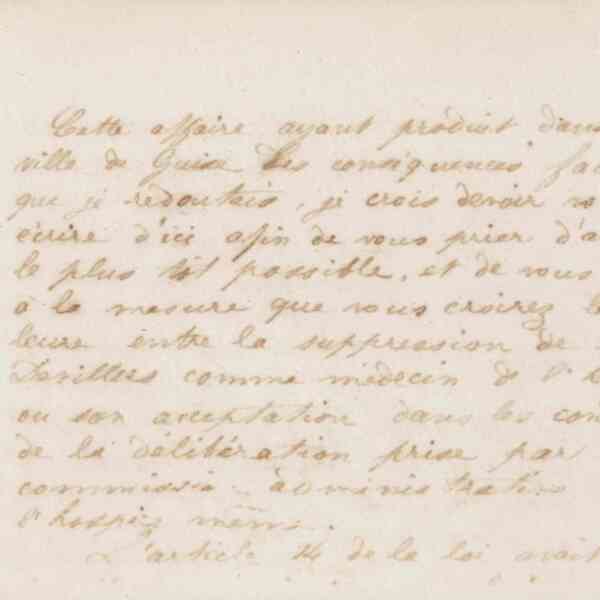 Cette affaire ayant produit dans
ville de Guise les conséquences
que je redoutais, je crois devoir
écrire d'ici afin de vous prier
le plus tôt possible, et de vous
à la mesure que vous croirez
leure entre la suppression de
comme médecin de
ou son acceptation dans les
de la délibération prise par
administrative
l'hospice même.
L'article 14 de la loi